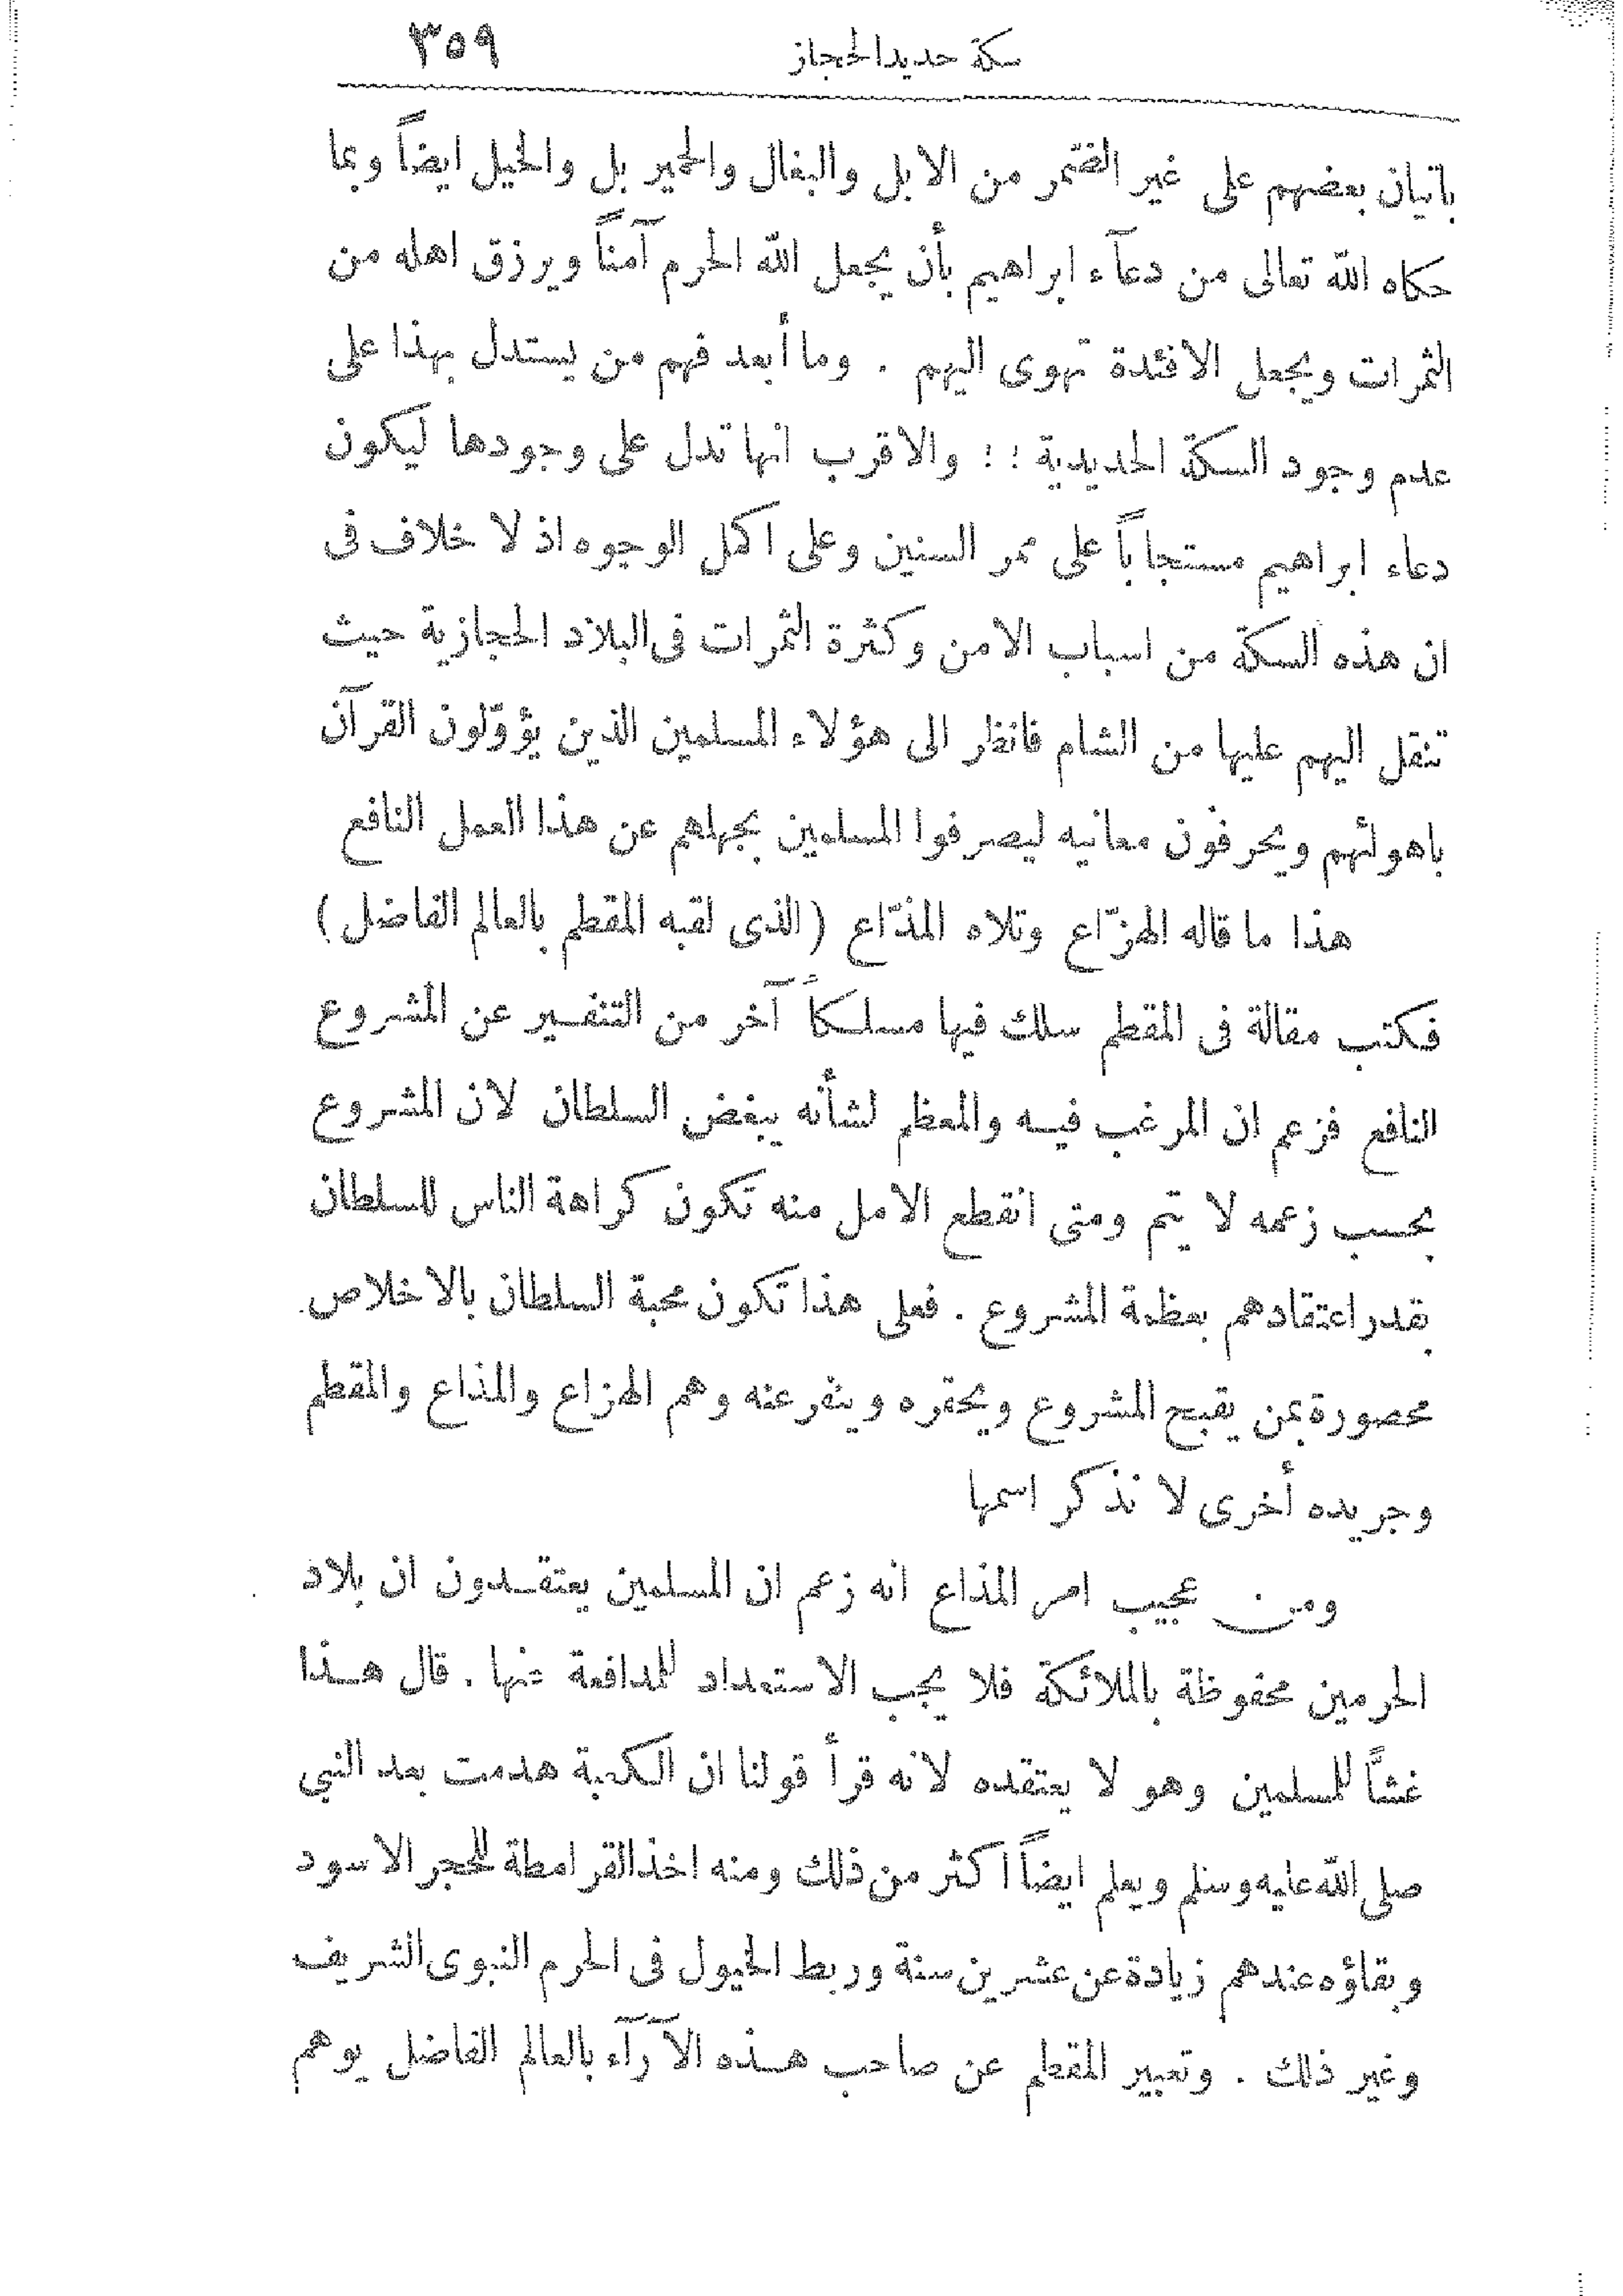 سكة حديد الحجاز ٣٥٩
باتيان بعضهم على غير الضمر من الابل والبغال والحمير بل والخيل ايضاً وبما
حكاه الله تعالى من دعآء ابراهيم بأن يجعل الله الحرم آمناً ويرزق اهله من
الثمرات ويجعل الافئدة تهوى اليهم . وما أبعد فهم من يستدل بهذا على
عدم وجود السكة الحديدية ؛ ؛ والاقرب انها تدل على وجودها ليكون
دعاء ابراهيم مستجاباً على ممر السنين وعلى اكمل الوجوه اذ لا خلاف فى
ان هذه السكة من اسباب الامن وكثرة الثمرات فى البلاد الحجازية حيث
تنقل اليهم عليها من الشام فانظر الى هؤلاء المسلمين الذين يؤوّلون القرآن
باهوائهم ويحرفون معانيه ليصرفوا المسلمين بجهلهم عن هذا العمل النافع
هذا ما قاله الهزّاع وتلاه المذّاع (الذى لقبه المقطم بالعالم الفاضل)
فكتب مقالة فى المقطم سلك فيها مسلكاً آخر من التنفير عن المشروع
النافع فزعم ان المرغب فيه والمعظم لشأنه يبغض السلطان لان المشروع
بحسب زعمه لا يتم ومتى انقطع الامل منه تكون كراهة الناس للسلطان
بقدر اعتقادهم بعظمة المشروع . فعلى هذا تكون محبة السلطان بالاخلاص
محصورة بمن يقبح المشروع ويحقره وينفر عنه وهم الهزاع والمذاع والمقطم
وجريده أخرى لا نذكر اسمها
ومن عجيب امر المذاع انه زعم ان المسلمين يعتقدون ان بلاد
الحرمين محفوظة بالملائكة فلا يجب الاستعداد للمدافعة عنها . قال هذا
غشاً للمسلمين وهو لا يعتقده لانه قرأ قولنا ان الكعبة هدمت بعد النبي
صلى الله عليه وسلم ويعلم ايضاً اكثر من ذلك ومنه اخذ القرامطة للحجر الاسود
وبقاؤه عندهم زيادة عن عشرين سنة وربط الخيول فى الحرم النبوى الشريف
وغير ذلك . وتعبير المقطم عن صاحب هذه الآرآء بالعالم الفاضل يوهم